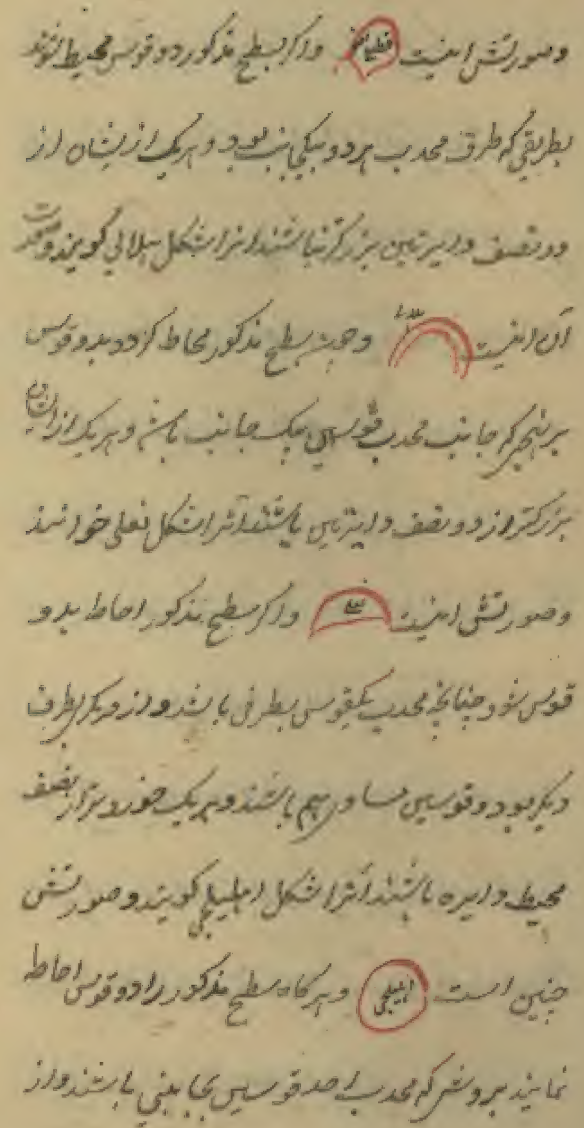 وصورتش اینست قطاع واکر سطح مذکور دو قوس محیط شوند
بطریقی که طرف محدب هر دو بیکجانب بود و هریک ازیشان از
دو نصف دایرتین بزرکتر نباشند انرا شکل هلالی کویند و صورت
آن اینست هلالی و چون سطح مذکور محاط کردد بدو قوس
بر نهجی که جانب محدب قوسین بیک جانب باشد و هریک از ایشان
بزرکتر از دو نصف دایرتین باشند آنرا شکل نعلی خوانند
وصورتش اینست واکر سطح مذکور احاط بدو
قوس شود چنانچه محدب یکقوس بطرفی باشد و از دیکر بطرف
دیکر بود و قوسین مساوی هم باشند و هریک خورد تر از نصف
محیط دایره باشند آنرا شکل اهلیلجی کویند و صورتش
چنین است اهلیلجی و هرکاه سطح مذکور را دو قوس احاطه
نمایند بروشی که محدب احد قوسین بجانبی باشند و از